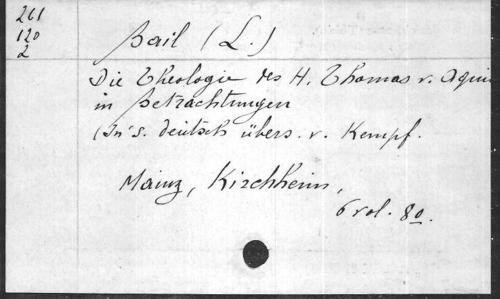 261
120
2
Bail (L.)
Die Theologie des H. Thomas v. Aquin
in Betrachtungen
(In's deutsch übers. v. Kempf.
Mainz, Kirchheim,
6 vol. 8o.